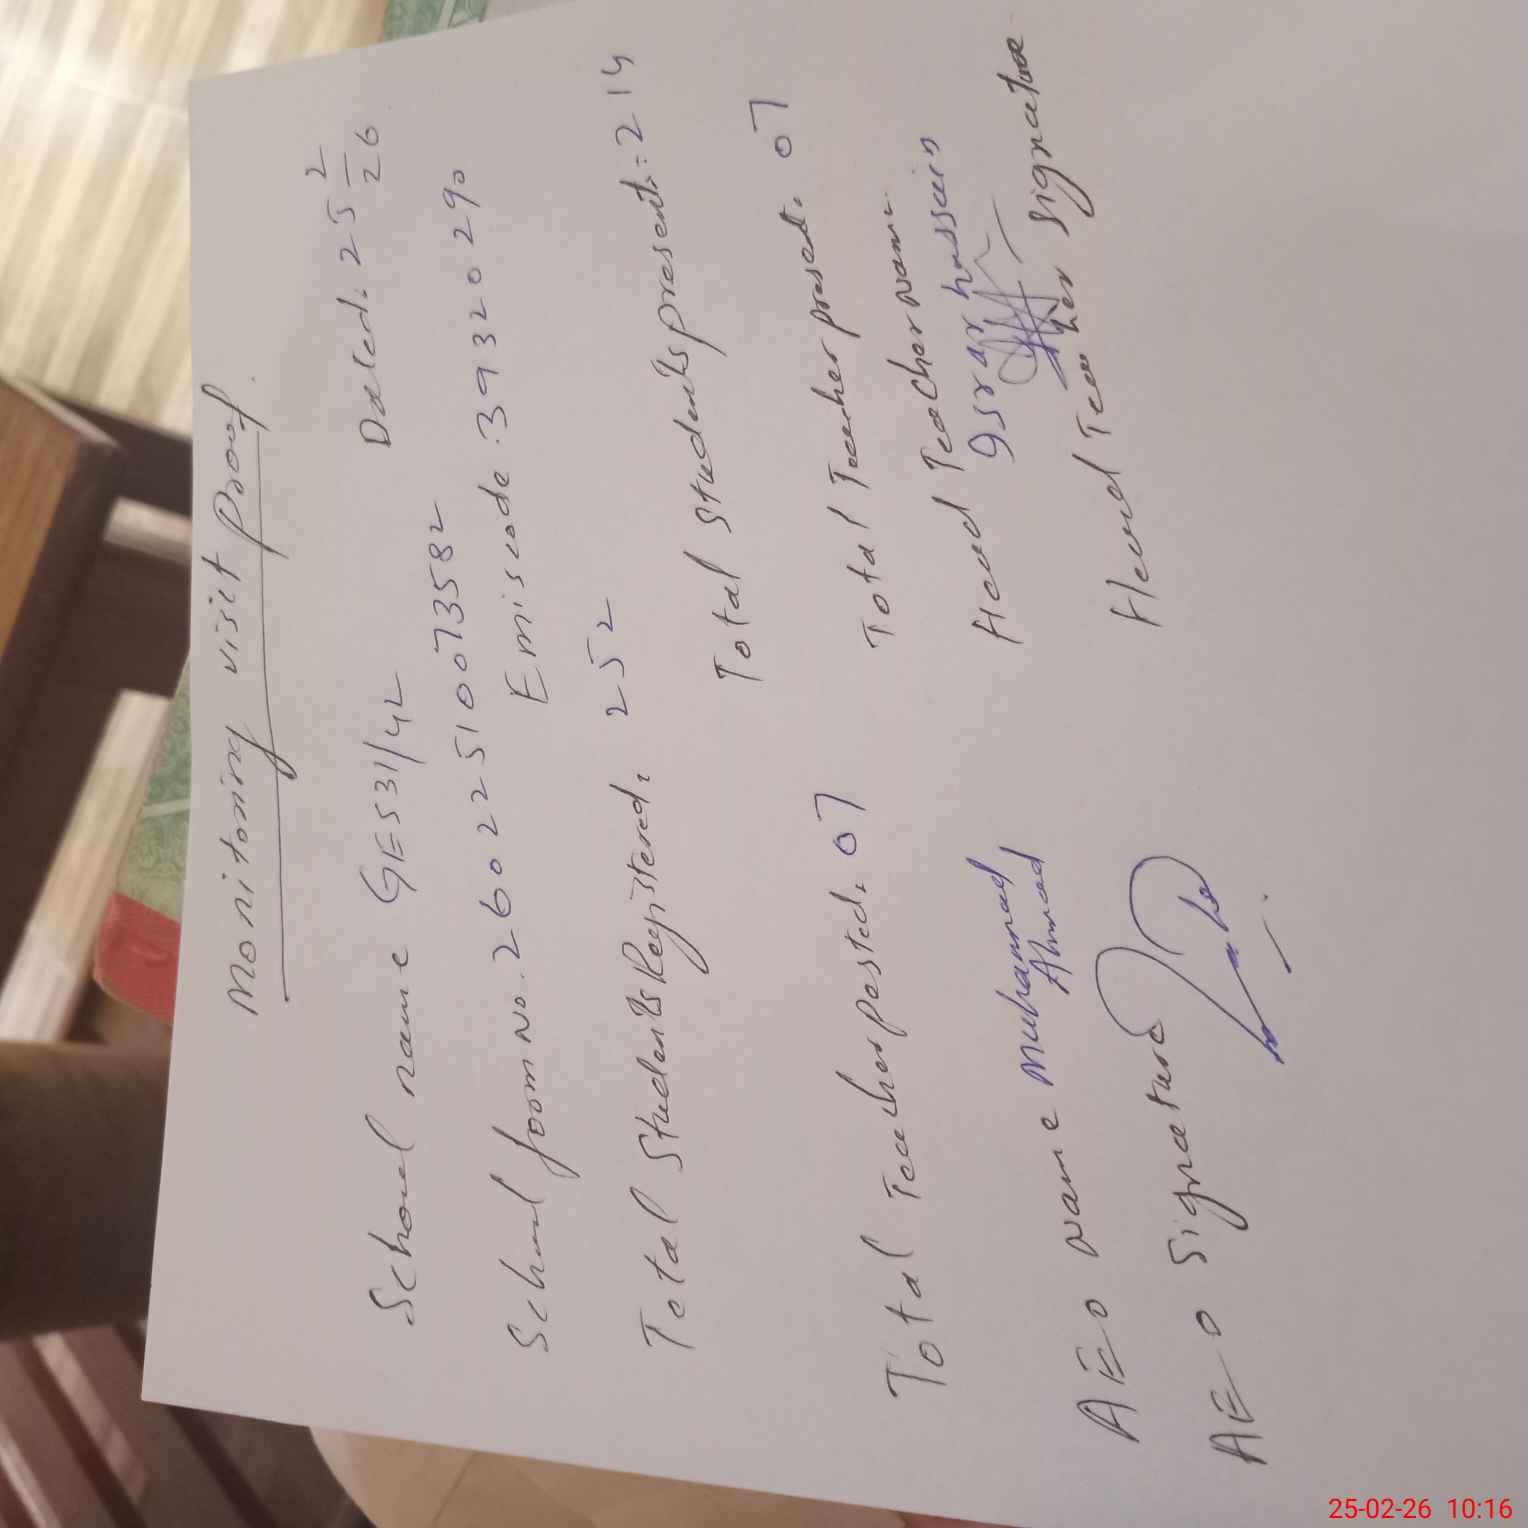 Monitoring visit proof.
School name GES31/42 Dated: 25 2/26
School form No. 26022510073582
Emiscode: 39320290
Total Students Registered: 252
Total Students present: 214
Total Teacher posted: 07
Total Teacher present: 07
Total Teacher name:
AEO name Muhammad Ahmad
Head Teacher
Israr hussain
AEO Signature
Head Teacher signature
25-02-26 10:16